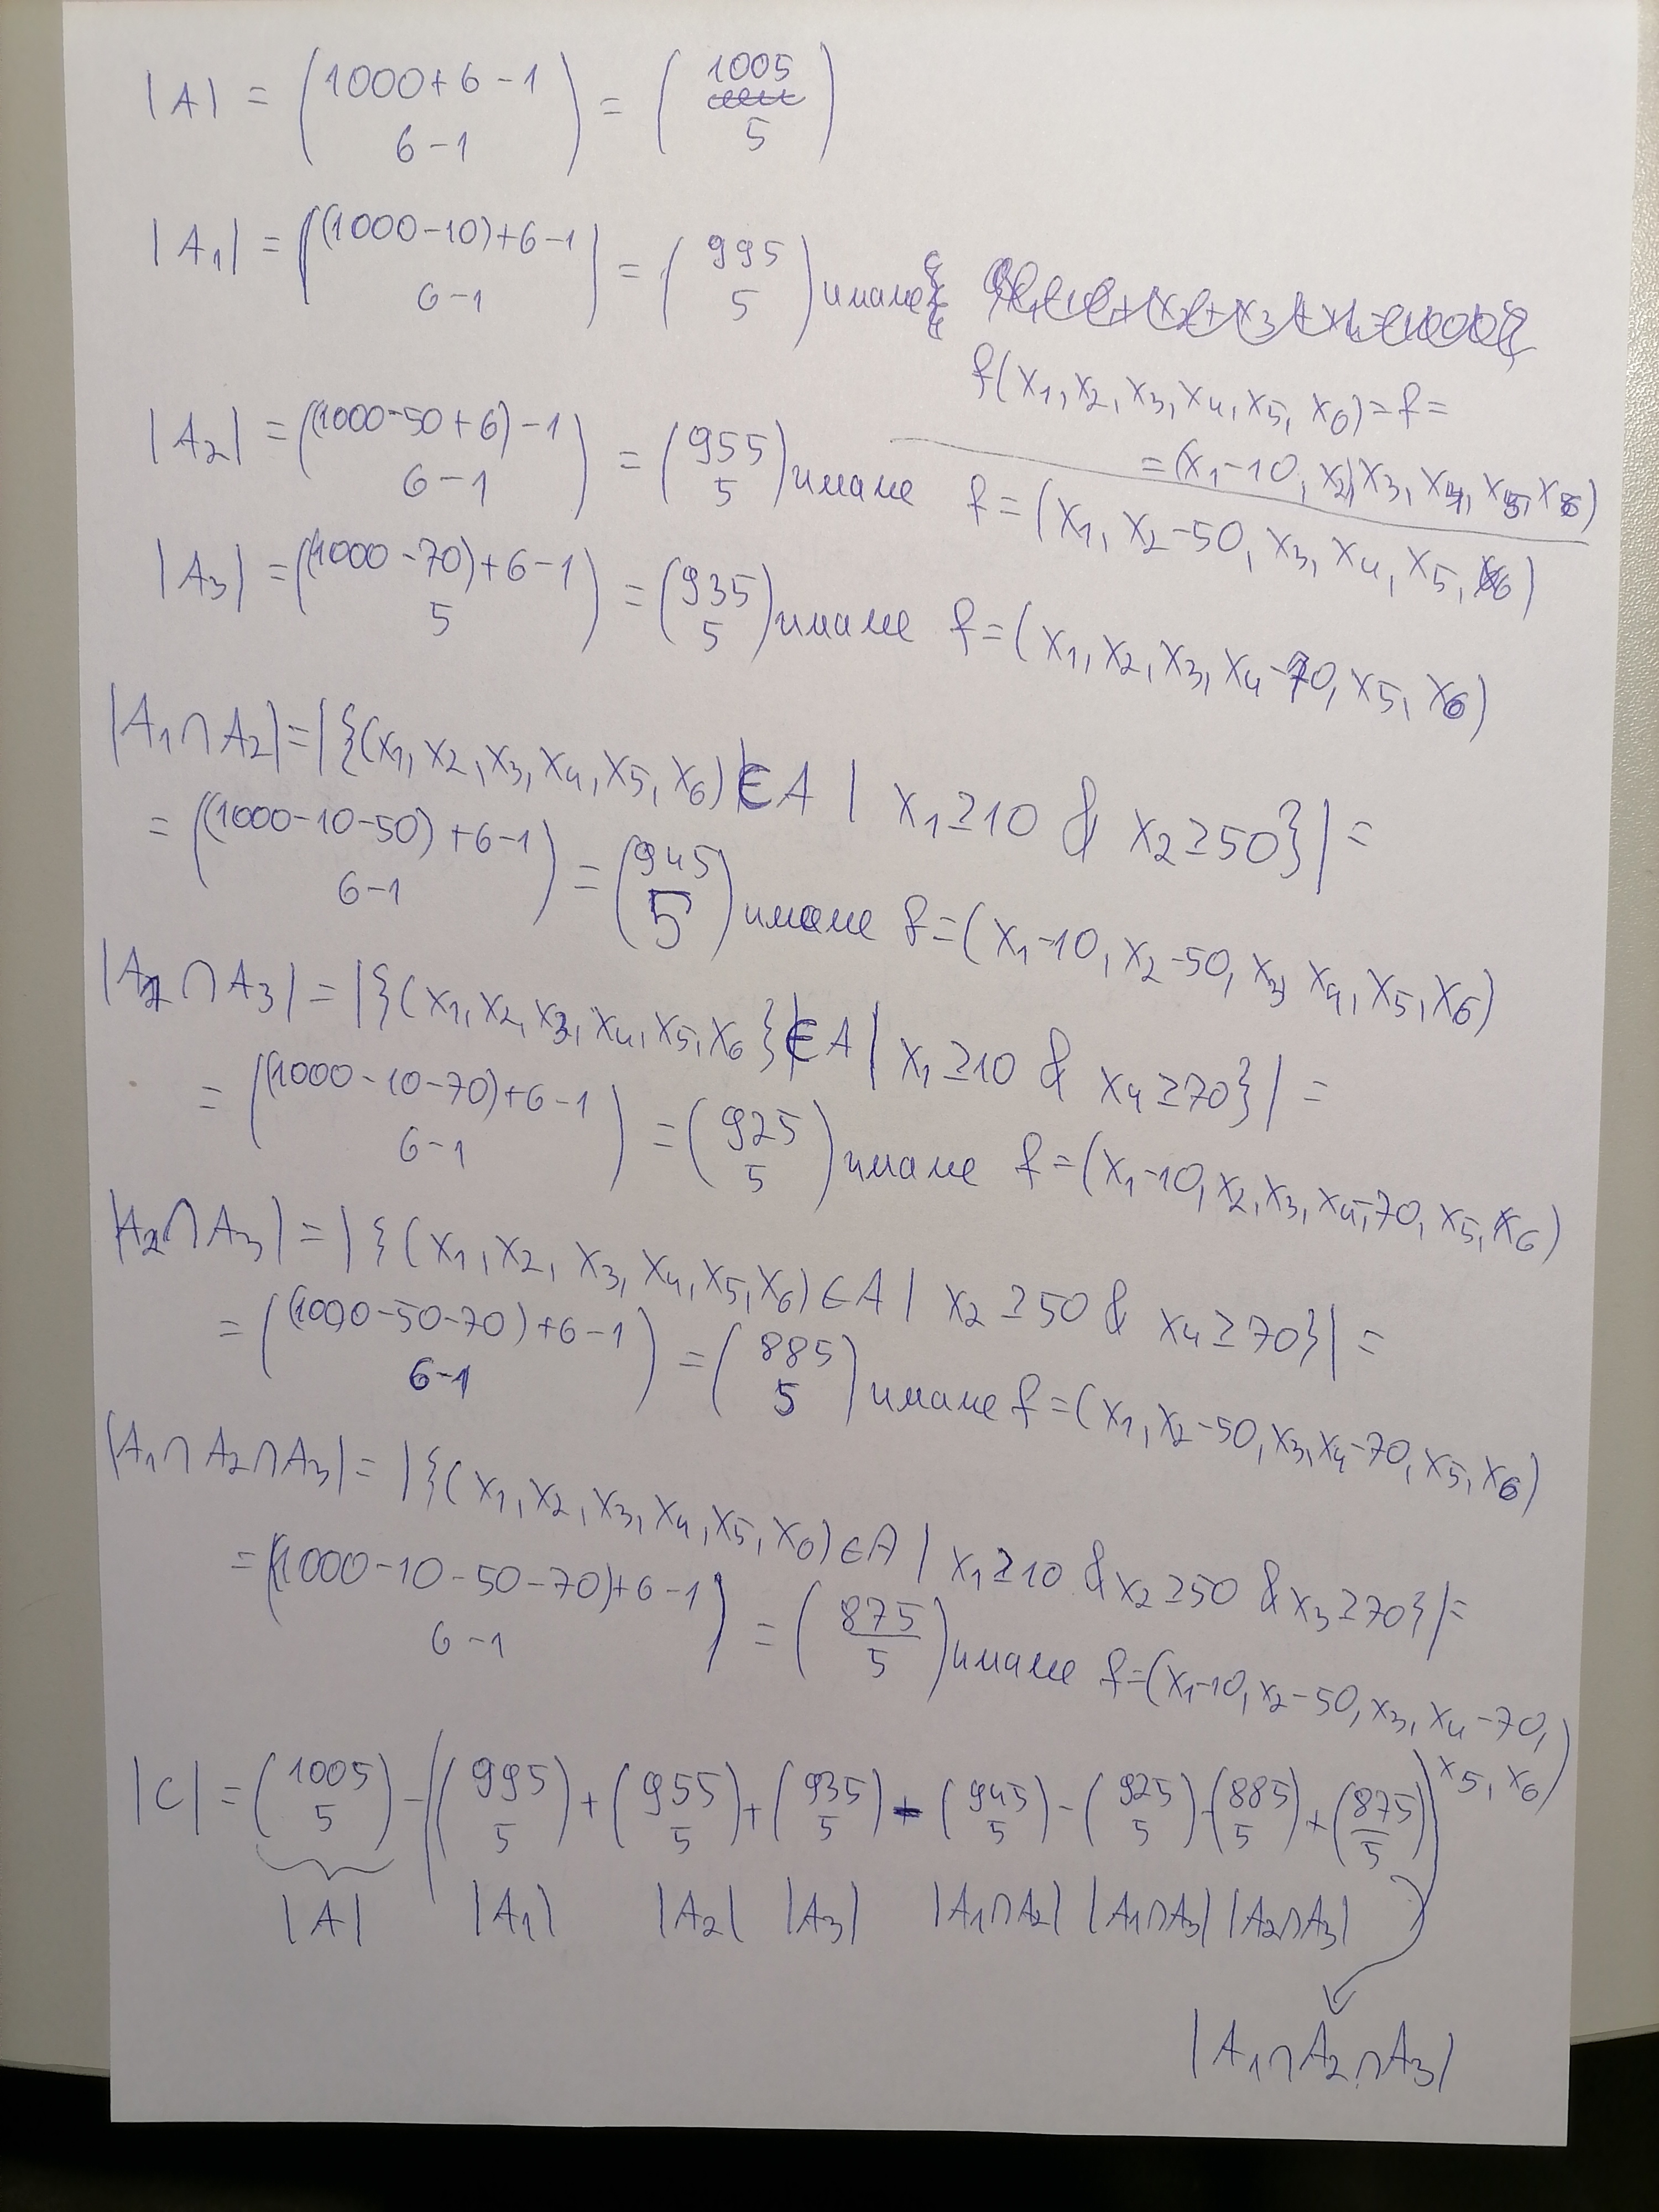 |A| = (1000+6-1 / 6-1) = (1005 / 5)
|A₁| = ((1000-10)+6-1 / 6-1) = (995 / 5) имаме
f(x₁, x₂, x₃, x₄, x₅, x₆) = f =
= (x₁-10, x₂, x₃, x₄, x₅, x�6)
|A₂| = ((1000-50+6)-1 / 6-1) = (955 / 5) имаме f = (x₁, x₂-50, x₃, x₄, x₅, x₆)
|A₃| = ((1000-70)+6-1 / 5) = (935 / 5) имаме f = (x₁, x₂, x₃, x₄-70, x₅, x₆)
|A₁∩A₂| = |{(x₁, x₂, x₃, x₄, x₅, x₆) ∈ A | x₁≥10 & x₂≥50}| =
= ((1000-10-50)+6-1 / 6-1) = (945 / 5) имаме f = (x₁-10, x₂-50, x₃, x₄, x₅, x₆)
|A₁∩A₃| = |{(x₁, x₂, x₃, x₄, x₅, x₆} ∈ A | x₁≥10 & x₄≥70}| =
= ((1000-10-70)+6-1 / 6-1) = (925 / 5) имаме f = (x₁-10, x₂, x₃, x₄-70, x₅, x₆)
|A₂∩A₃| = |{(x₁, x₂, x₃, x₄, x₅, x₆) ∈ A | x₂≥50 & x₄≥70}| =
= ((1000-50-70)+6-1 / 6-1) = (885 / 5) имаме f = (x₁, x₂-50, x₃, x₄-70, x₅, x₆)
|A₁∩A₂∩A₃| = |{(x₁, x₂, x₃, x₄, x₅, x₆) ∈ A | x₁≥10 & x₂≥50 & x₃≥70}| =
= ((1000-10-50-70)+6-1 / 6-1) = (875 / 5) имаме f = (x₁-10, x₂-50, x₃, x₄-70,
x₅, x₆)
|C| = (1005 / 5) - ((995 / 5) + (955 / 5) + (935 / 5) - (945 / 5) - (925 / 5) - (885 / 5) + (875 / 5))
|A| |A₁| |A₂| |A₃| |A₁∩A₂| |A₁∩A₃| |A₂∩A₃|
|A₁∩A₂∩A₃|